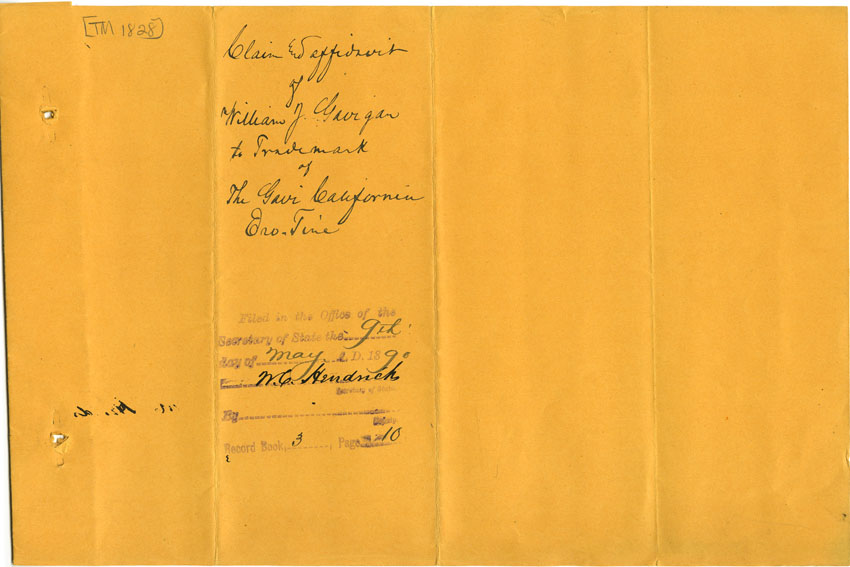 [TM 1828]
Claim and affidavit
of
William J. Gavigan
to Trademark
of
The Gavi California
Ero-Tine
Filed in the Office of the
Secretary of State the 9th
day of May A. D. 1890
W.C. Hendricks
Secretary of State
By
Deputy
Record Book, 3, Page 10